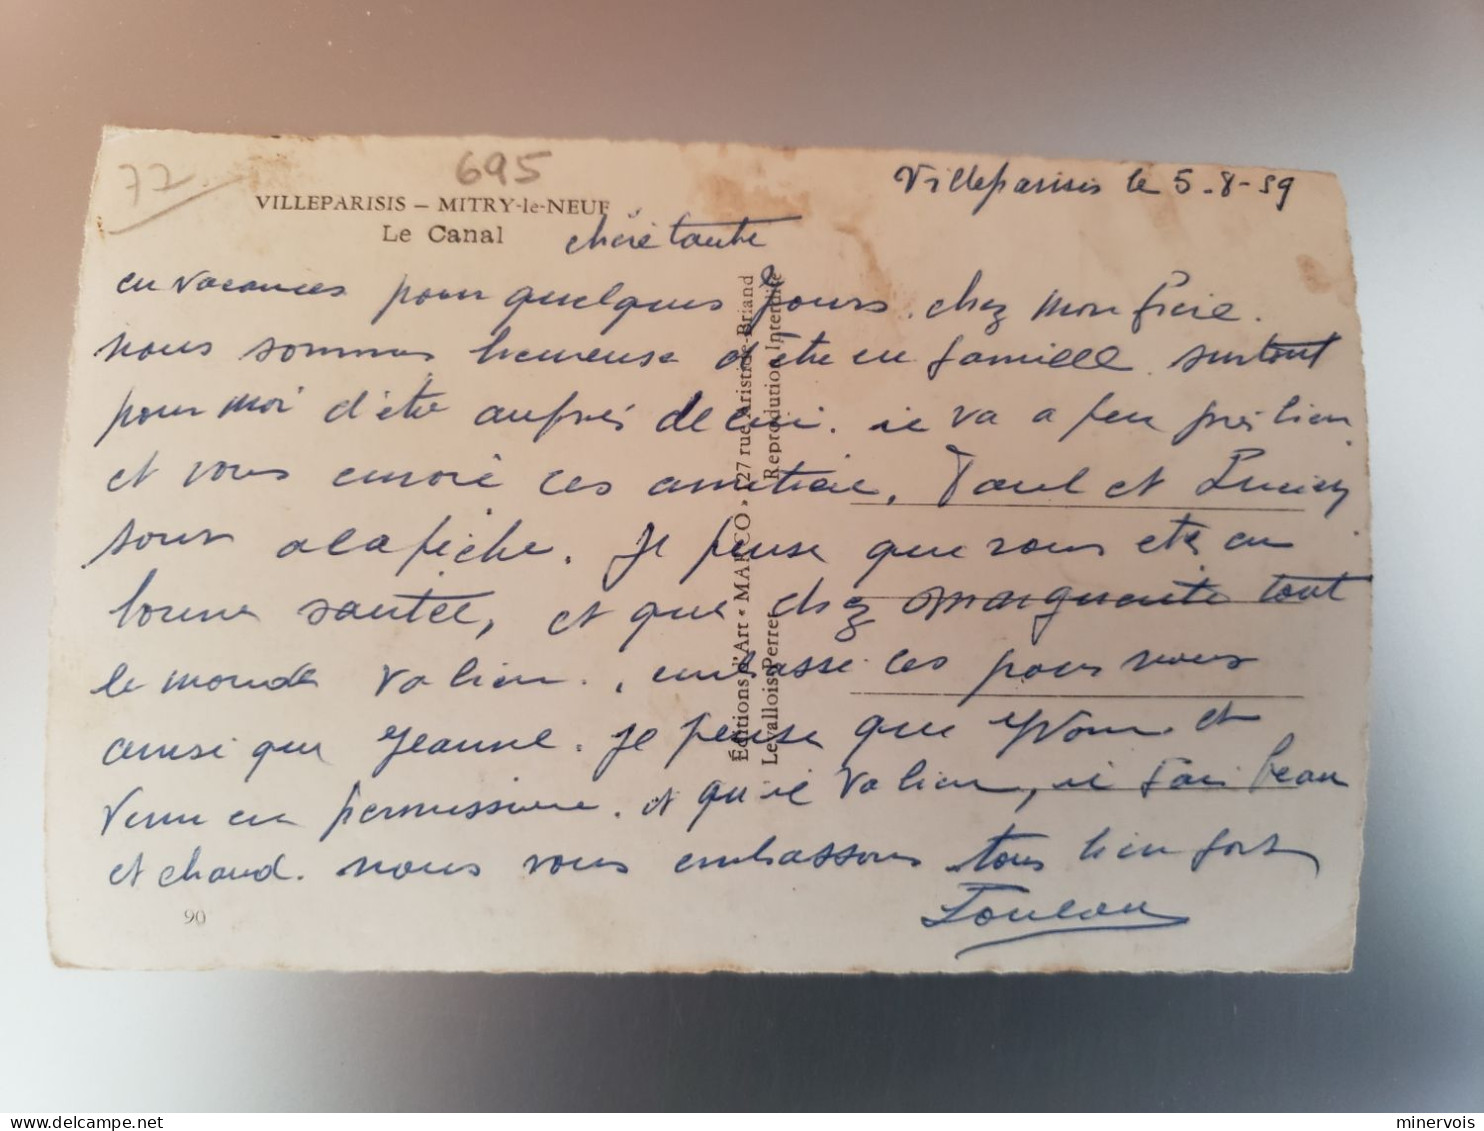 77
695
VILLEPARISIS – MITRY-le-NEUF
Le Canal
Villeparisis le 5-8-59
chère tante
en vacances pour quelques jours. chez mon frère.
nous sommes heureuse d'être en famille surtout
pour moi d'être auprès de lui. il va a peu près bien
et vous envoie ces amitiée, Paul et Lucien
sour a la pèche. Je pense que vous ete en
bonne santée, et que chez marguerite tout
le monde va bien., embrasse les pour nous
ainsi que Jeanne. Je pense que Yvon et
venu en permissione. et qu'il va bien, il fai beau
et chaud. nous vous embassons tous bien fort
90
Éditions d'Art « MARCO » 127 rue Aristide-Briand
Levallois-Perret Reproduction Interdite
minervois